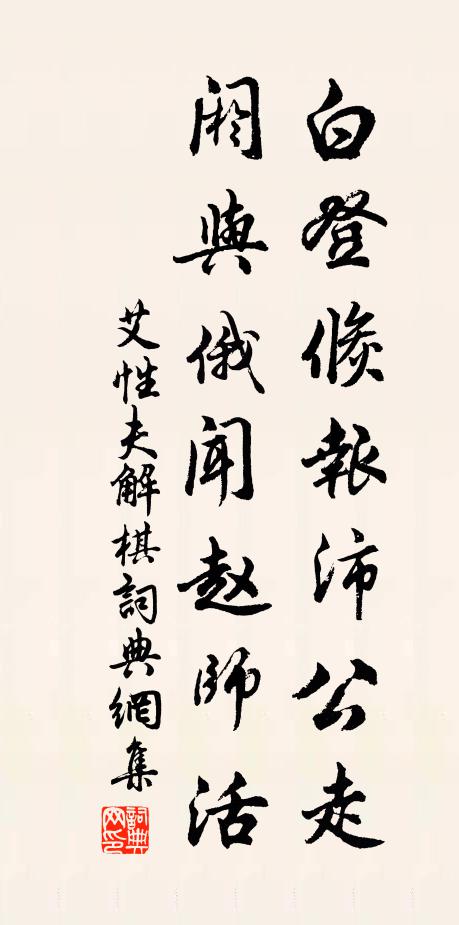 白登倐報沛公走
阏與俄聞赵師活
艾性夫解棋詞典網集
詞典
网印